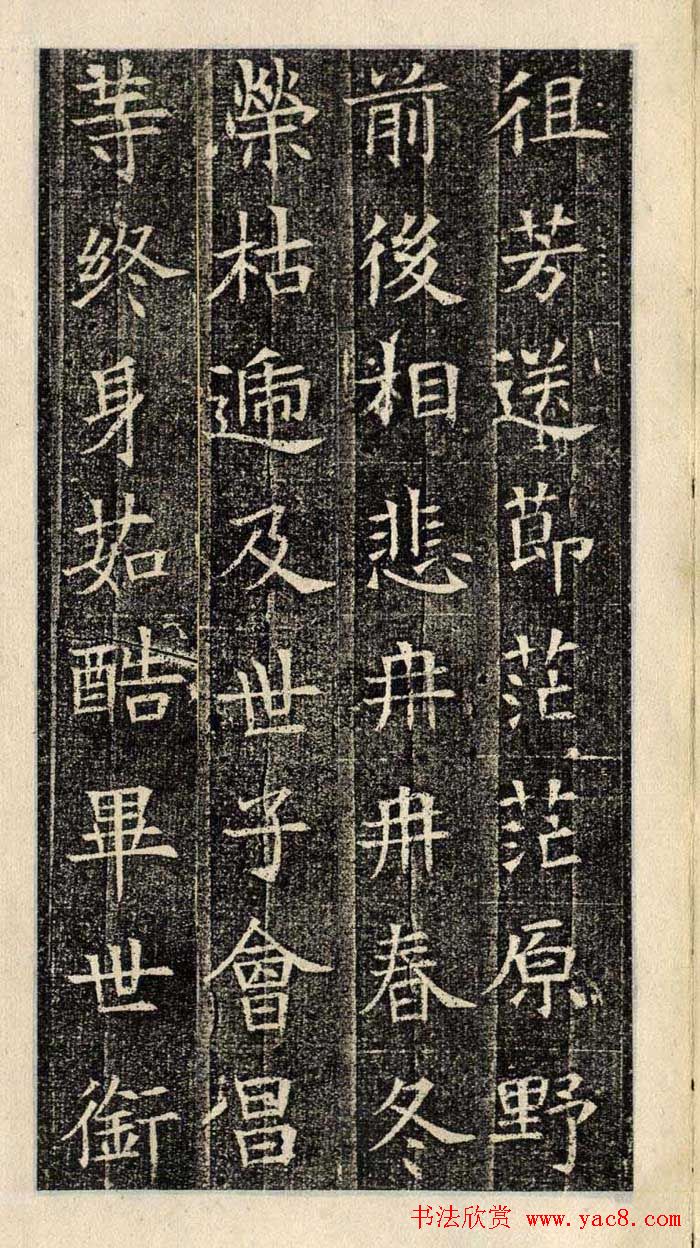 徂芳送節茫茫原野
前後相悲冉冉春冬
榮枯遞及世子會倡
等終身茹酷畢世銜
书法欣赏 www.yac8.com